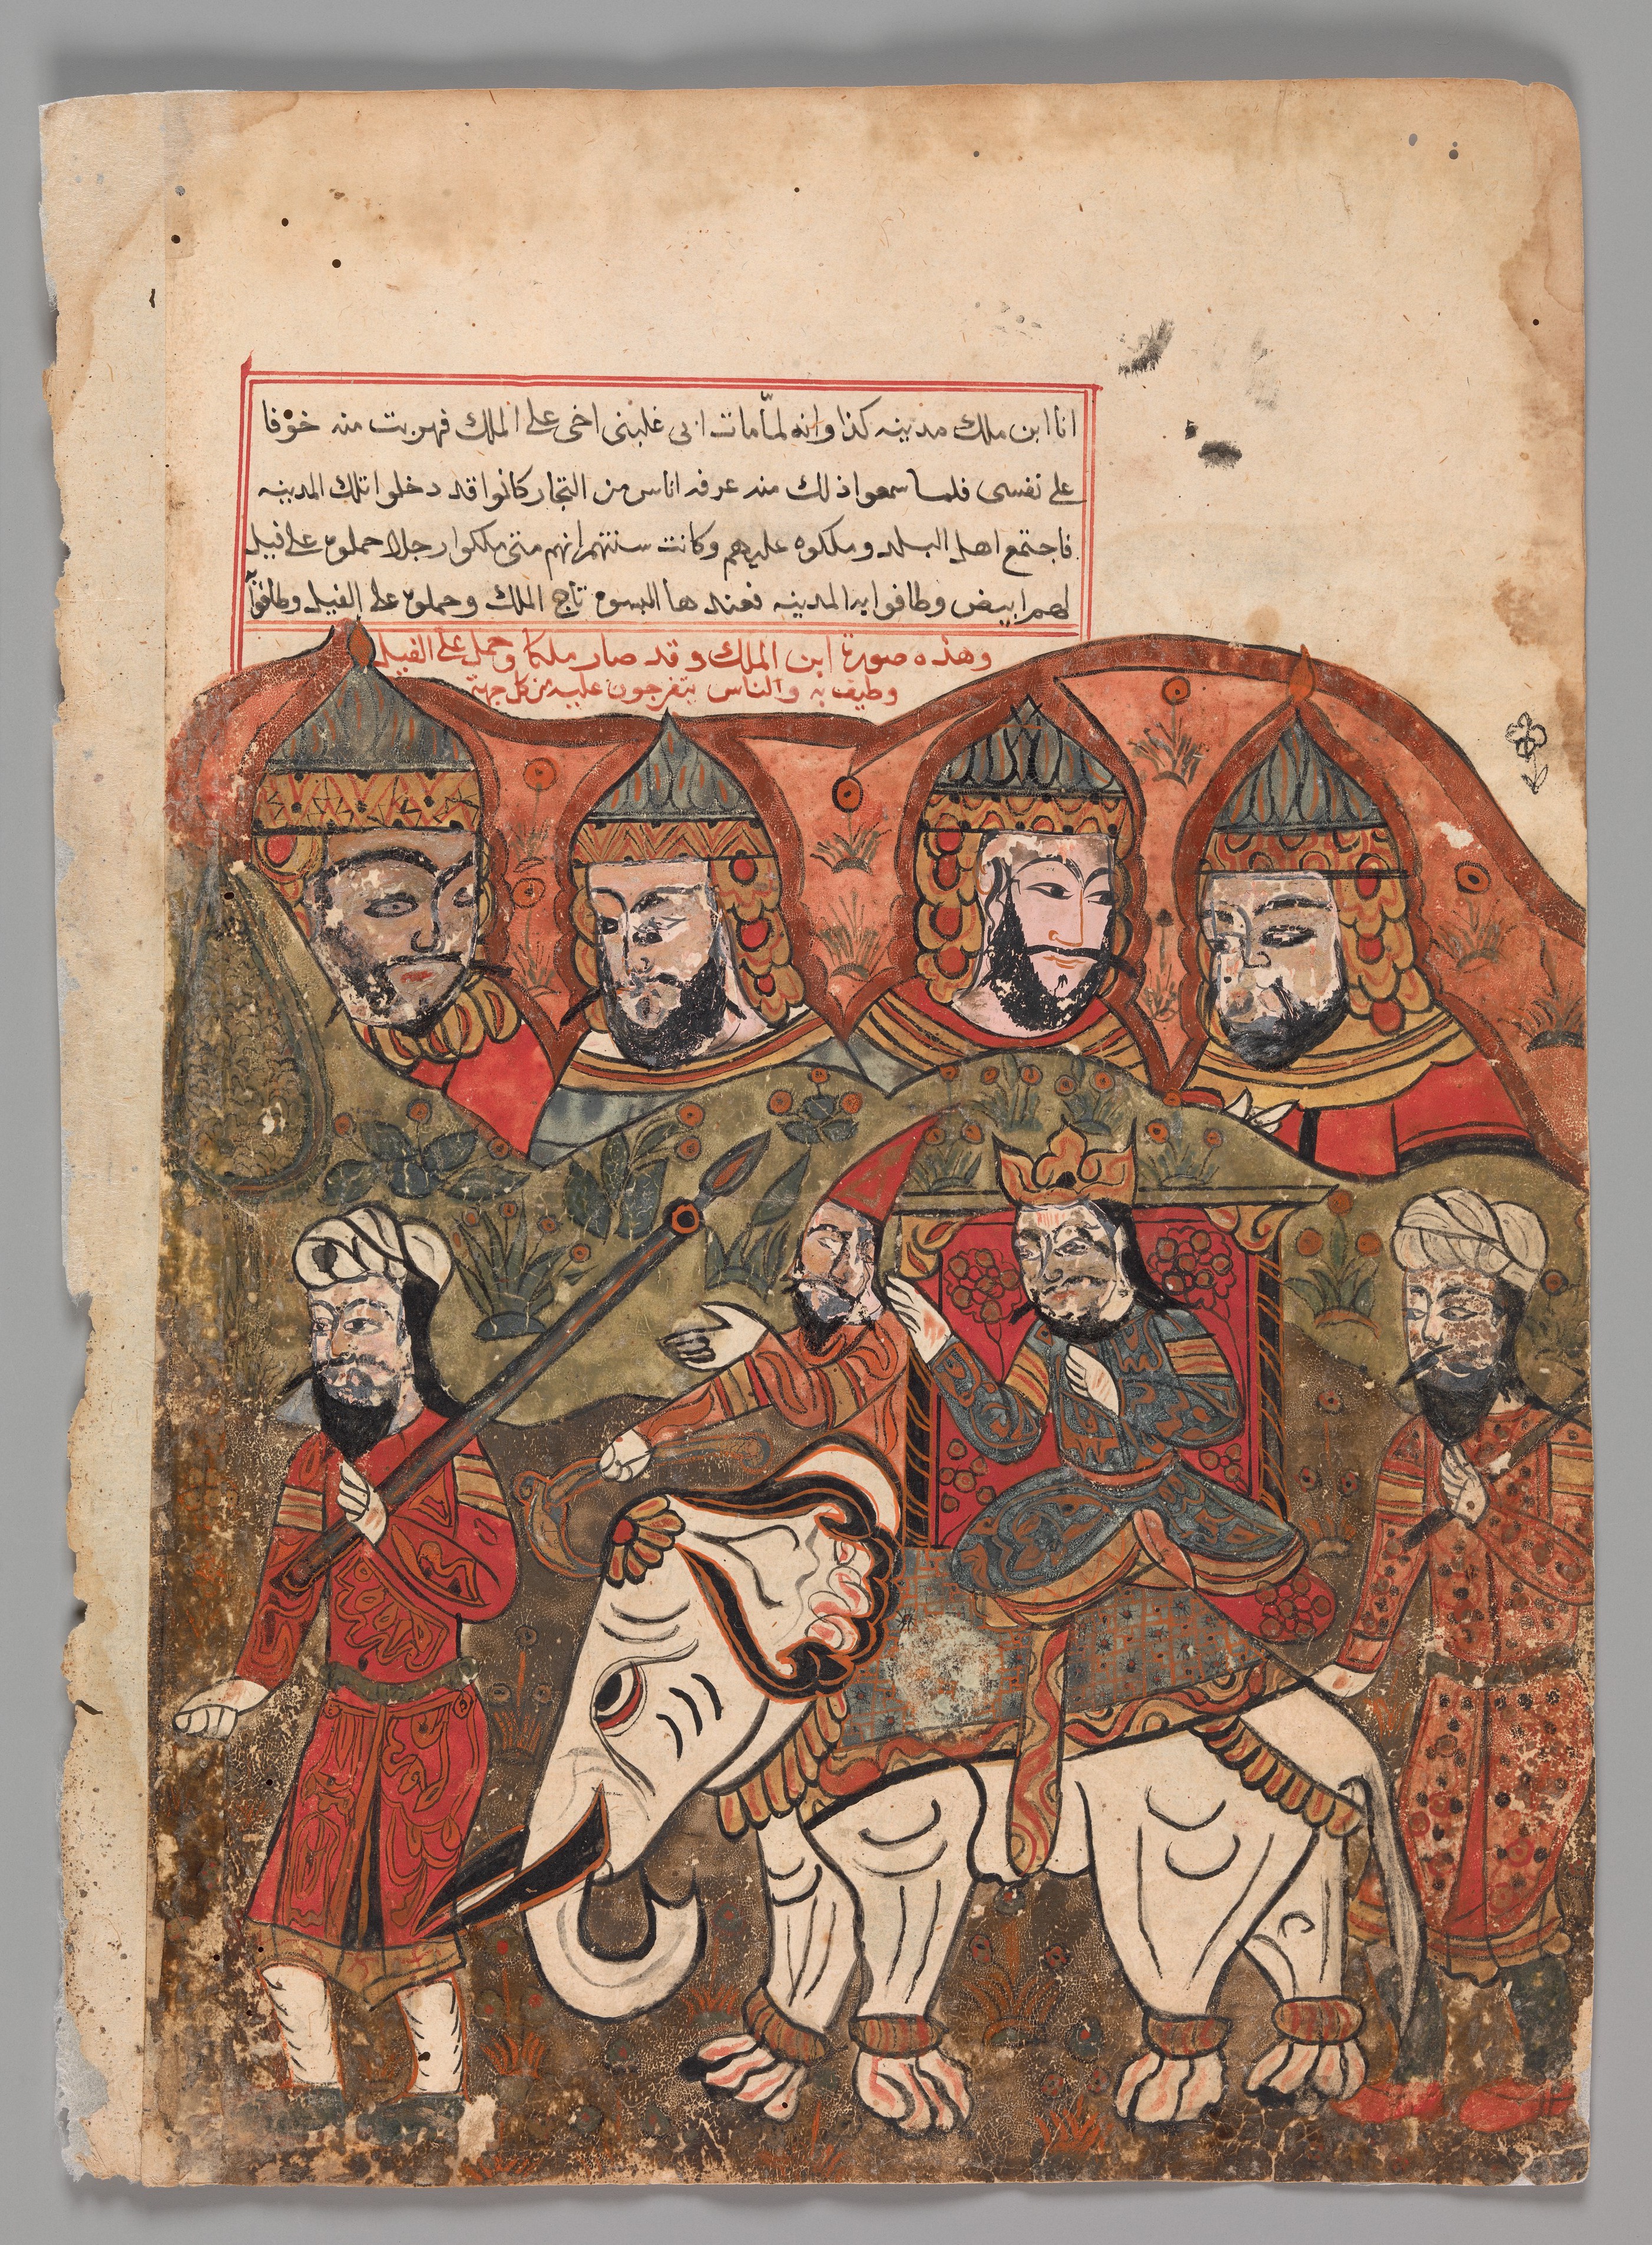 انا ابن ملك مدينه كذا وانه لما مات ابى غلبنى اخى على الملك فهربت منه خوفا
على نفسى فلما سمعوا ذلك منه عرفه اناس من التجار كانوا قد دخلوا تلك المدينه
فاجتمع اهل البلد وملكوه عليهم وكانت سنتهم انهم متى ملكوا رجلا حملوه على فيل
لهم ابيض وطافوا به المدينه فعندها البسوه تاج الملك وحملوه على الفيل وطافوا به
وهذه صورة ابن الملك وقد صار ملكا وحمل على الفيل
وطيف به والناس يتفرجون عليه من كل جهة